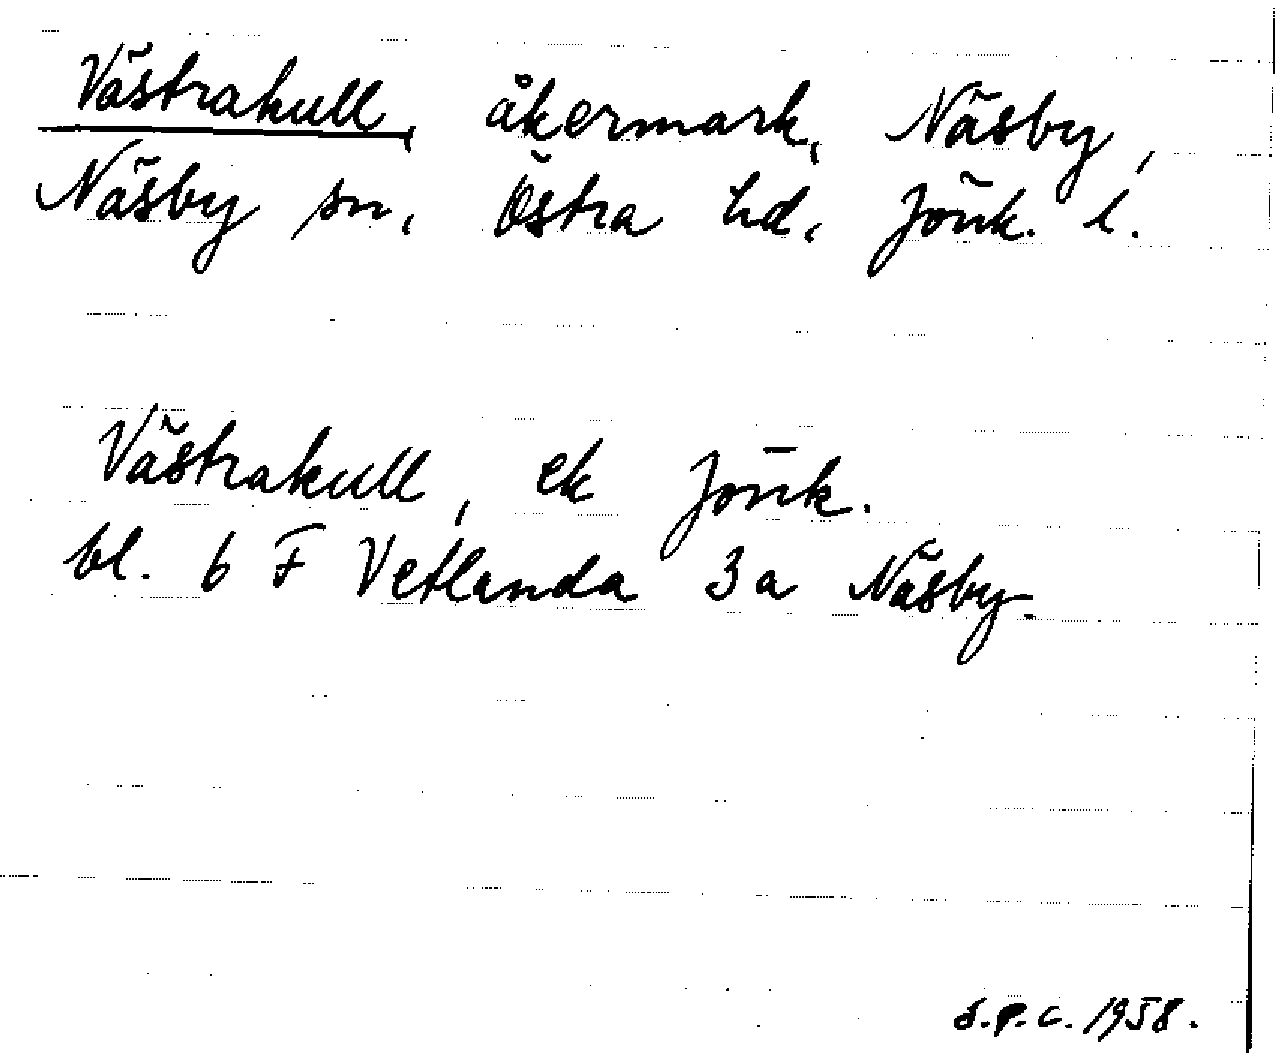 Västrakull, åkermark, Näsby,
Näsby sn, Östra hd, Jönk. l.
Västrakull, ek Jönk.
bl. 6 F Vetlanda 3a Näsby.
S.P.C. 1958.